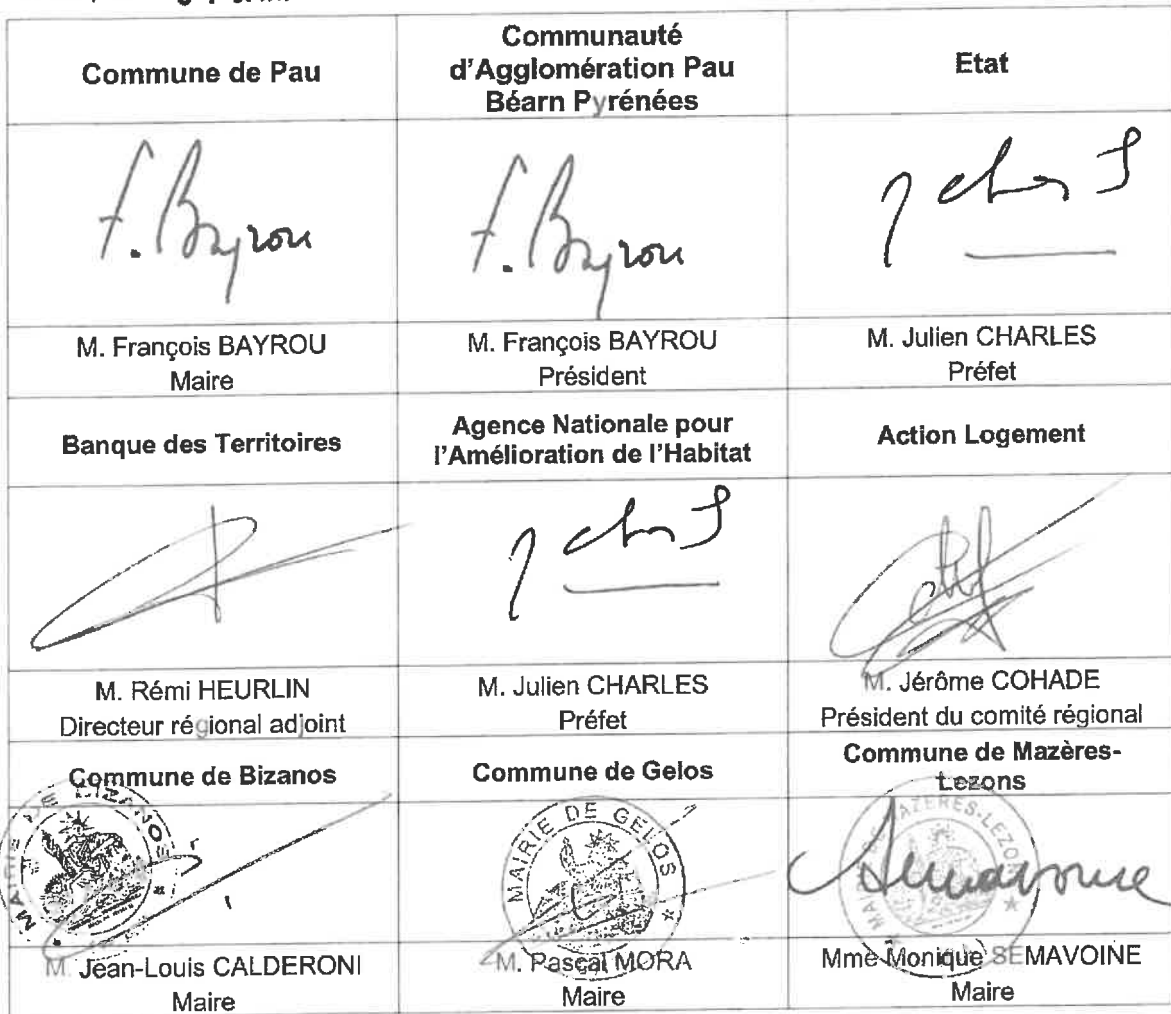 Commune de Pau
Communauté
d'Agglomération Pau
Béarn Pyrénées
Etat
F. Bayrou
F. Bayrou
M. François BAYROU
Maire
M. François BAYROU
Président
M. Julien CHARLES
Préfet
Banque des Territoires
Agence Nationale pour
l'Amélioration de l'Habitat
Action Logement
M. Rémi HEURLIN
Directeur régional adjoint
M. Julien CHARLES
Préfet
M. Jérôme COHADE
Président du comité régional
Commune de Bizanos
Commune de Gelos
Commune de Mazères-
Lezons
MAIRIE DE BIZANOS
MAIRIE DE GELOS
MAZERES-LEZONS
Semavoine
M. Jean-Louis CALDERONI
Maire
M. Pascal MORA
Maire
Mme Monique SEMAVOINE
Maire